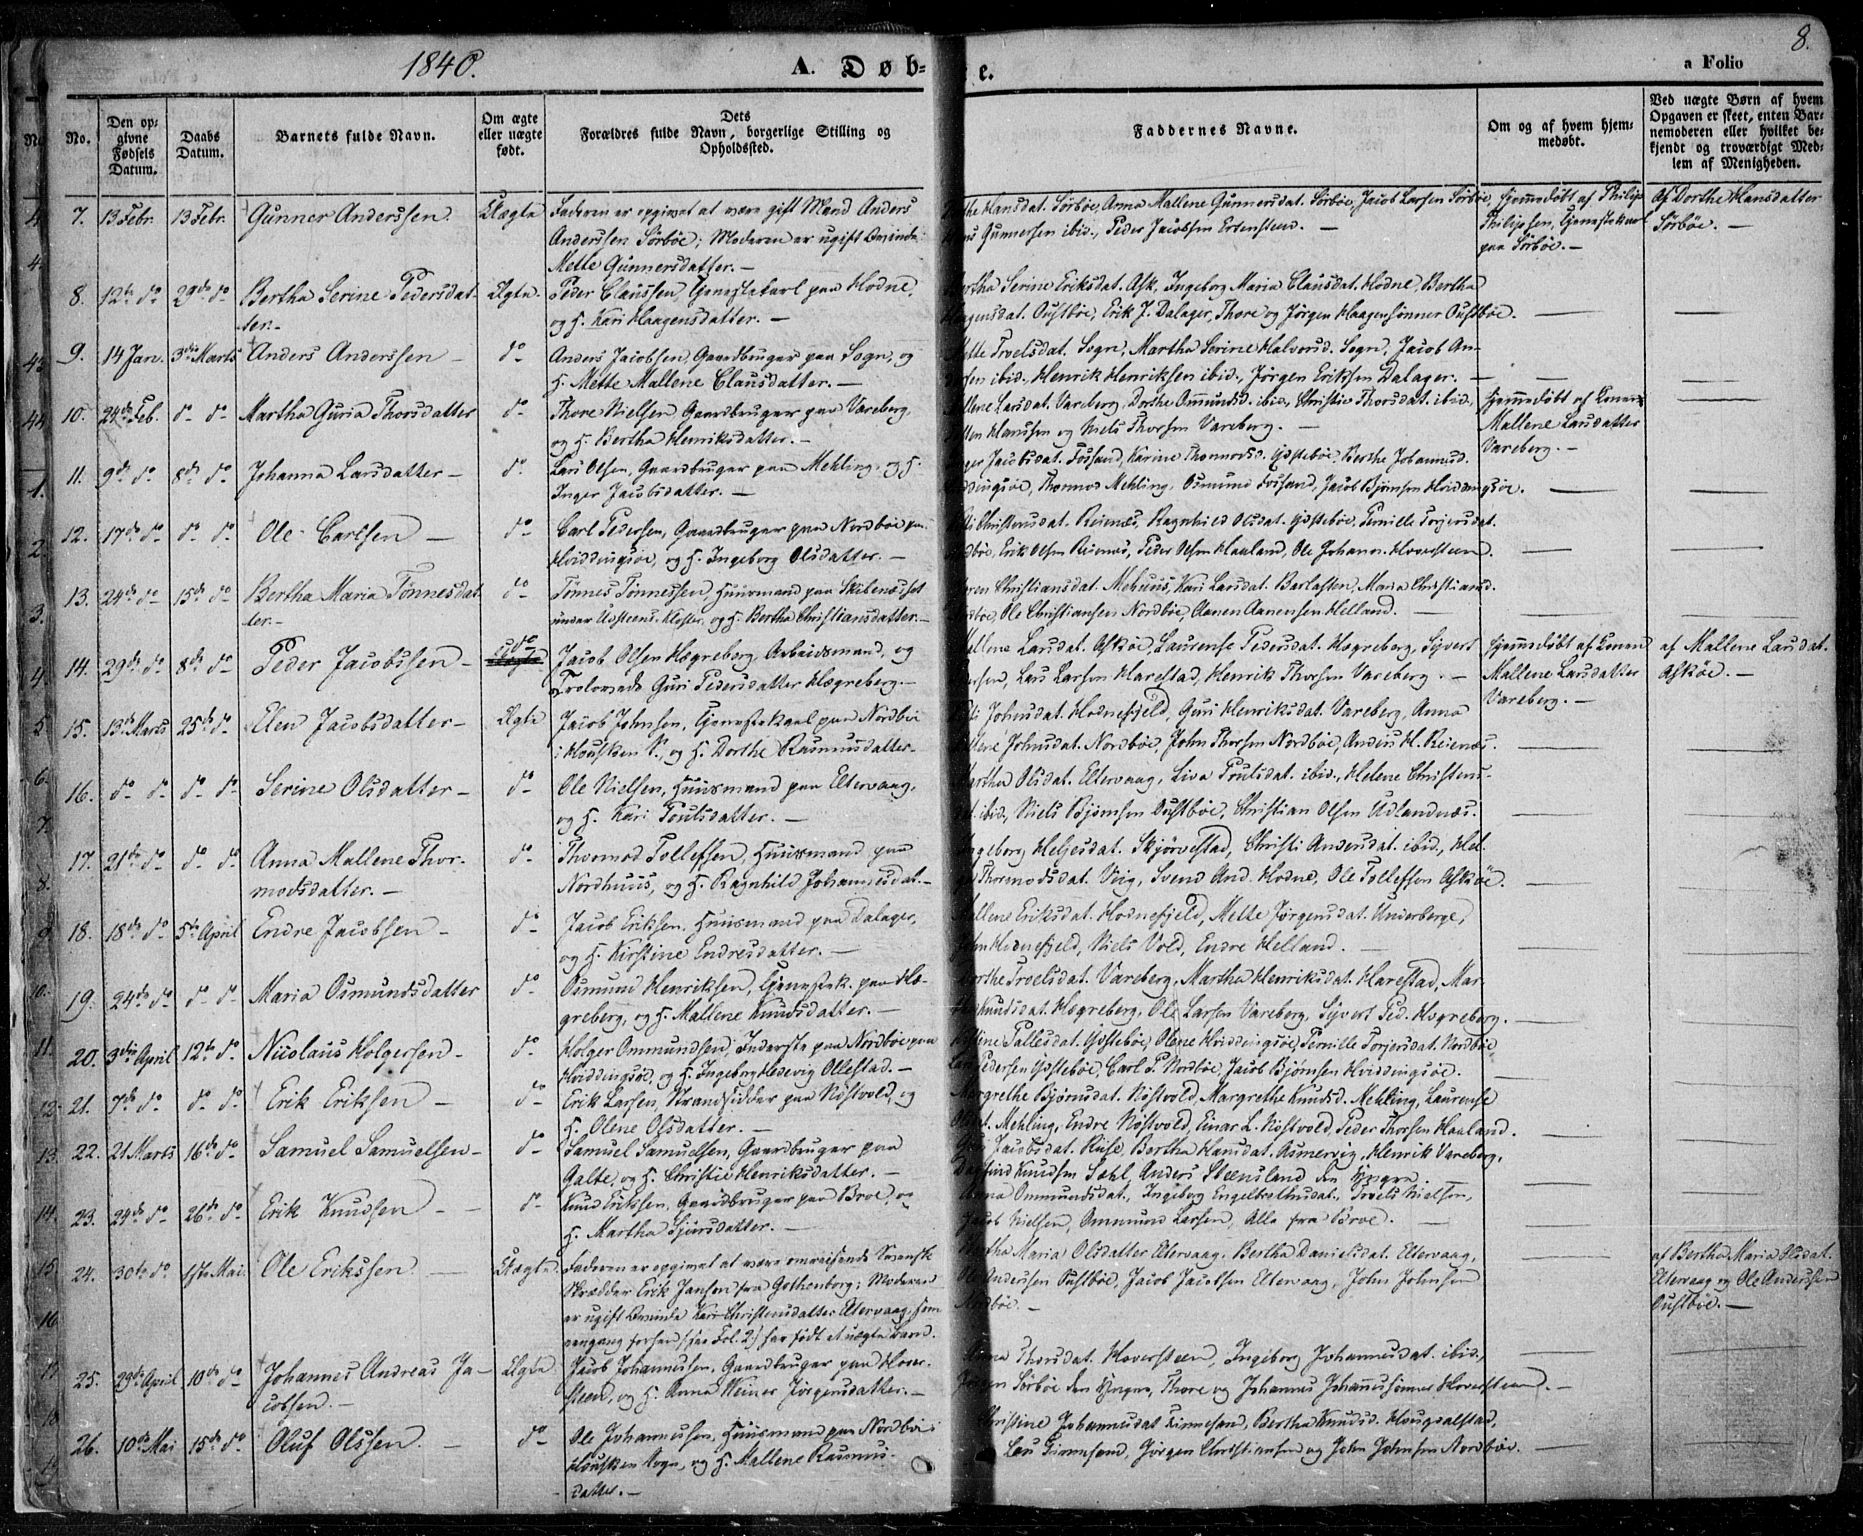 1840.
A. Døb-
e.
a Folio
8.
No.
Den opgivne Fødsels Datum.
Daabs Datum.
Barnets fulde Navn.
Om ægte eller uægte født.
Dets Forældres fulde Navn, borgerlige Stilling og Opholdssted.
Faddernes Navne.
Om og af hvem hjemmedøbt.
Ved uægte Børn af hvem Opgaven er skeet, enten Barnemoderen eller hvilket bekjendt og troværdigt Medlem af Menigheden.
7. 13 Febr. 13 Febr. Gunner Anderssen. Uægte Faderen er opgivet at være gift Mand Anders
Anderssen Sörböe; Moderen er ugift Qvinde
Mette Gunnersdatter. —
Hansdat. Sörböe, Anna Mallene Gunnersdat. Sörböe, Jacob Larsen Sörböe,
Gunnersen ibid., Peder Jacobsen Ertensteen. —
Hjemmedöbt af Philip
Philipsen, Tjenestekarl
paa Sörböe. —
Af Dorthe Hansdatter
Sörböe. —
8. 12te do 29de do Bertha Serine Pedersdat-
ter. —
Ægte. Peder Claussen, Tjenestekarl paa Hodne,
og H. Kari Haagensdatter. —
Serine Eriksdat. Ask, Ingeborg Maria Clausdat. Hodne, Bertha
Haagensdat. Oustböe, Erik J. Dalager, Thore og Jörgen Haagensönner Oustböe. —
9. 14 Jan. 3die Marts Anders Anderssen — do Anders Jacobsen, Gaardbruger paa Sogn, og
H. Mette Mallene Clausdatter. —
Mette Troelsdat. Sogn, Martha Serine Halvorsd. Sogn, Jacob An-
dersen ibid., Henrik Henriksen ibid., Jörgen Eriksen Dalager. —
10. 24de Feb. do do Martha Guria Thorsdatter do Thore Nielsen, Gaardbruger paa Vareberg,
og H. Bertha Henriksdatter. —
Mallene Larsdat. Vareberg, Dorthe Ommundsd. ibid., Christie Thorsdat. ibid.,
Hansen og Niels Thorsen Vareberg. —
Hjemmedöbt af Konen
Mallene Larsdatter
Vareberg. —
11. 9de do 8de do Johanna Larsdatter — do Lars Olsen, Gaardbruger paa Mehling, og H.
Inger Jacobsdatter. —
Jacobsdat. Fossand, Karine Thormodsd. Gjosteböe, Berthe Johannesd.
Hviddingsöe, Thormod Mehling, Osmund Fossand, Jacob Bjørnsen Hviddingsöe. —
12. 17de do do do Ole Carlsen — do Carl Pedersen, Gaardbruger paa Nordböe paa
Hviddingsöe, og H. Ingeborg Olsdatter. —
Christensdat. Reienæs, Ragnhild Olsdat. Gjosteböe, Pernille Torjersdat.
Nordböe, Erik Olsen Reienæs, Peder Olsen Haaland, Ole Johann. Hoversteen. —
13. 24de do 15de do Bertha Maria Tönnesdat
ter. —
do Tönnes Tönnessen, Huusmand paa Skibenæsset
under Utsteens Kloster, og H. Bertha Christiansdatter. —
Christiansdat. Mehuus, Kari Larsdat. Berlasteen, Maria Christiansd.
Ole Christiansen Nordböe, Aanen Aanensen Helland. —
14. 29de do 8de do Peder Jacobssen — do Jacob Olsen Hægreberg, Arbeidsmand, og
Trolovede Guri Pedersdatter Hægreberg. —
Mallene Larsdat. Askøe, Laurense Pedersdat. Hægreberg, Syvert
Lars Larsen Harestad, Henrik Thorsen Vareberg. —
Hjemmedöbt af Konen
Mallene Larsdatter
Vareberg. —
af Mallene Larsdat.
Askøe. —
15. 13de Marts 25de do Elen Jacobsdatter — Ægte Jacob Johnsen, Tjenestekarl paa Nordböe
i Housken S., og H. Dorthe Rasmusdatter. —
Johnsdat. Hodnefjeld, Guri Henriksdat. Vareberg, Anna
Mallene Johnsdat. Nordböe, John Thorsen Nordböe, Anders H. Reienæs.
16. do do do do Serine Olsdatter — do Ole Nielsen, Huusmand paa Eltervaag,
og H. Kari Poulsdatter. —
Martha Olsdat. Eltervaag, Liva Poulsdat. ibid., Helene Christens-
ibid., Niels Bjørnsen Oustböe, Christian Olsen Udlandnæs.
17. 21de do do do Anna Mallene Thor-
modsdatter. —
do Thormod Tollefsen, Huusmand paa
Nordhuus, og H. Ragnhild Johannesdat. —
Ingeborg Helgesdat. Skjörvestad, Christi Andersdat. ibid., Hel-
Thormodsdat. Vaig, Svend And. Hodne, Ole Tollefsen Askøe.
18. 18de do 5te April Endre Jacobsen — do Jacob Eriksen, Huusmand paa Dalager,
og H. Kirstine Endresdatter. —
Mallene Eriksdat. Hodnefjeld, Mette Jörgensdat. Underberge,
John Hodnefjeld, Niels Vold, Endre Helland. —
19. 24de do do do Maria Osmundsdatter do Osmund Henriksen, Tjenestek. paa Hæ-
greberg, og H. Mallene Knudsdatter. —
Dorthe Troelsdat. Vareberg, Martha Henriksdat. Harestad, Mar-
Knudsdat. Hægreberg, Ole Larsen Vareberg, Syvert Ped. Hægreberg. —
20. 3die April 12te do Nicolaus Holgersen — do Holger Ommundsen, Inderste paa Nordböe paa
Hviddingsöe, og H. Ingeborg Hedevig Ollestad. —
Pallesdat. Gjosteböe, Olene Hviddingsöe, Pernille Torjersdat. Nordböe,
Pedersen Gjosteböe, Carl P. Nordböe, Jacob Bjørnsen Hviddingsöe. —
21. 7de do do do Erik Eriksen — do Erik Larsen, Strandsidder paa Nöstvold, og
H. Olene Olsdatter. —
Margrethe Bjørnsdat. Nöstvold, Margrethe Knudsd. Mehling, Laurense
Mehling, Endre Nöstvold, Einar L. Nöstvold, Peder Thorsen Haaland.
22. 21 Marts 16de do Samuel Samuelsen — do Samuel Samuelsen, Gaardbruger paa
Galte, og H. Christie Henriksdatter. —
Jacobsdat. Ruse, Bertha Hansdat. Aasmervig, Henrik Vareberg,
Knudsen Sæhl, Anders Steensland den Yngre.
23. 24de do 26de do Erik Knudsen — do Knud Eriksen, Gaardbruger paa Broe, og
H. Martha Sjursdatter. —
Anna Ommundsdat., Ingeborg Engelbrethsdat., Troels Nielsen,
Jacob Nielsen, Ommund Larsen, Alle fra Broe. —
24. 30te do 1ste Mai. Ole Erikssen. — Uægte. Faderen er opgivet at være omreisende Svensk
Skrædder Erik Jansen fra Gothenborg; Moderen
er ugift Qvinde Kari Christensdatter Eltervaag, som
eengang forhen (see Fol. 2) har født et uægte Barn.
Maria Olsdatter Eltervaag, Bertha Danielsdat. Eltervaag,
Ole Andersen Oustböe, Jacob Jacobsen Eltervaag, John Johnsen
Nordböe. —
af Bertha Maria Olsdat.
Eltervaag og Ole Anderssen
Oustböe. —
25. 29de April 10de do Johannes Andreas Ja-
cobsen. —
Ægte Jacob Johannessen, Gaardbruger paa Hover-
steen, og H. Anna Reiner Jörgensdatter. —
Anna Thorsdat. Hoversteen, Ingeborg Johannesdat. ibid.,
Sörböe den Yngre, Thore og Johannes Johannessönner Hoversteen. —
26. 10de Mai 15de do Oluf Olssen. — do Ole Johannessen, Huusmand paa Nordböe i
Housken Sogn, og H. Mallene Rasmus-
datter. —
Christine Johannesdat Finnesand, Bertha Knudsd. Hougsalstad,
Lars Finnesand, Jörgen Christiansen og John Johnsen Nordböe.